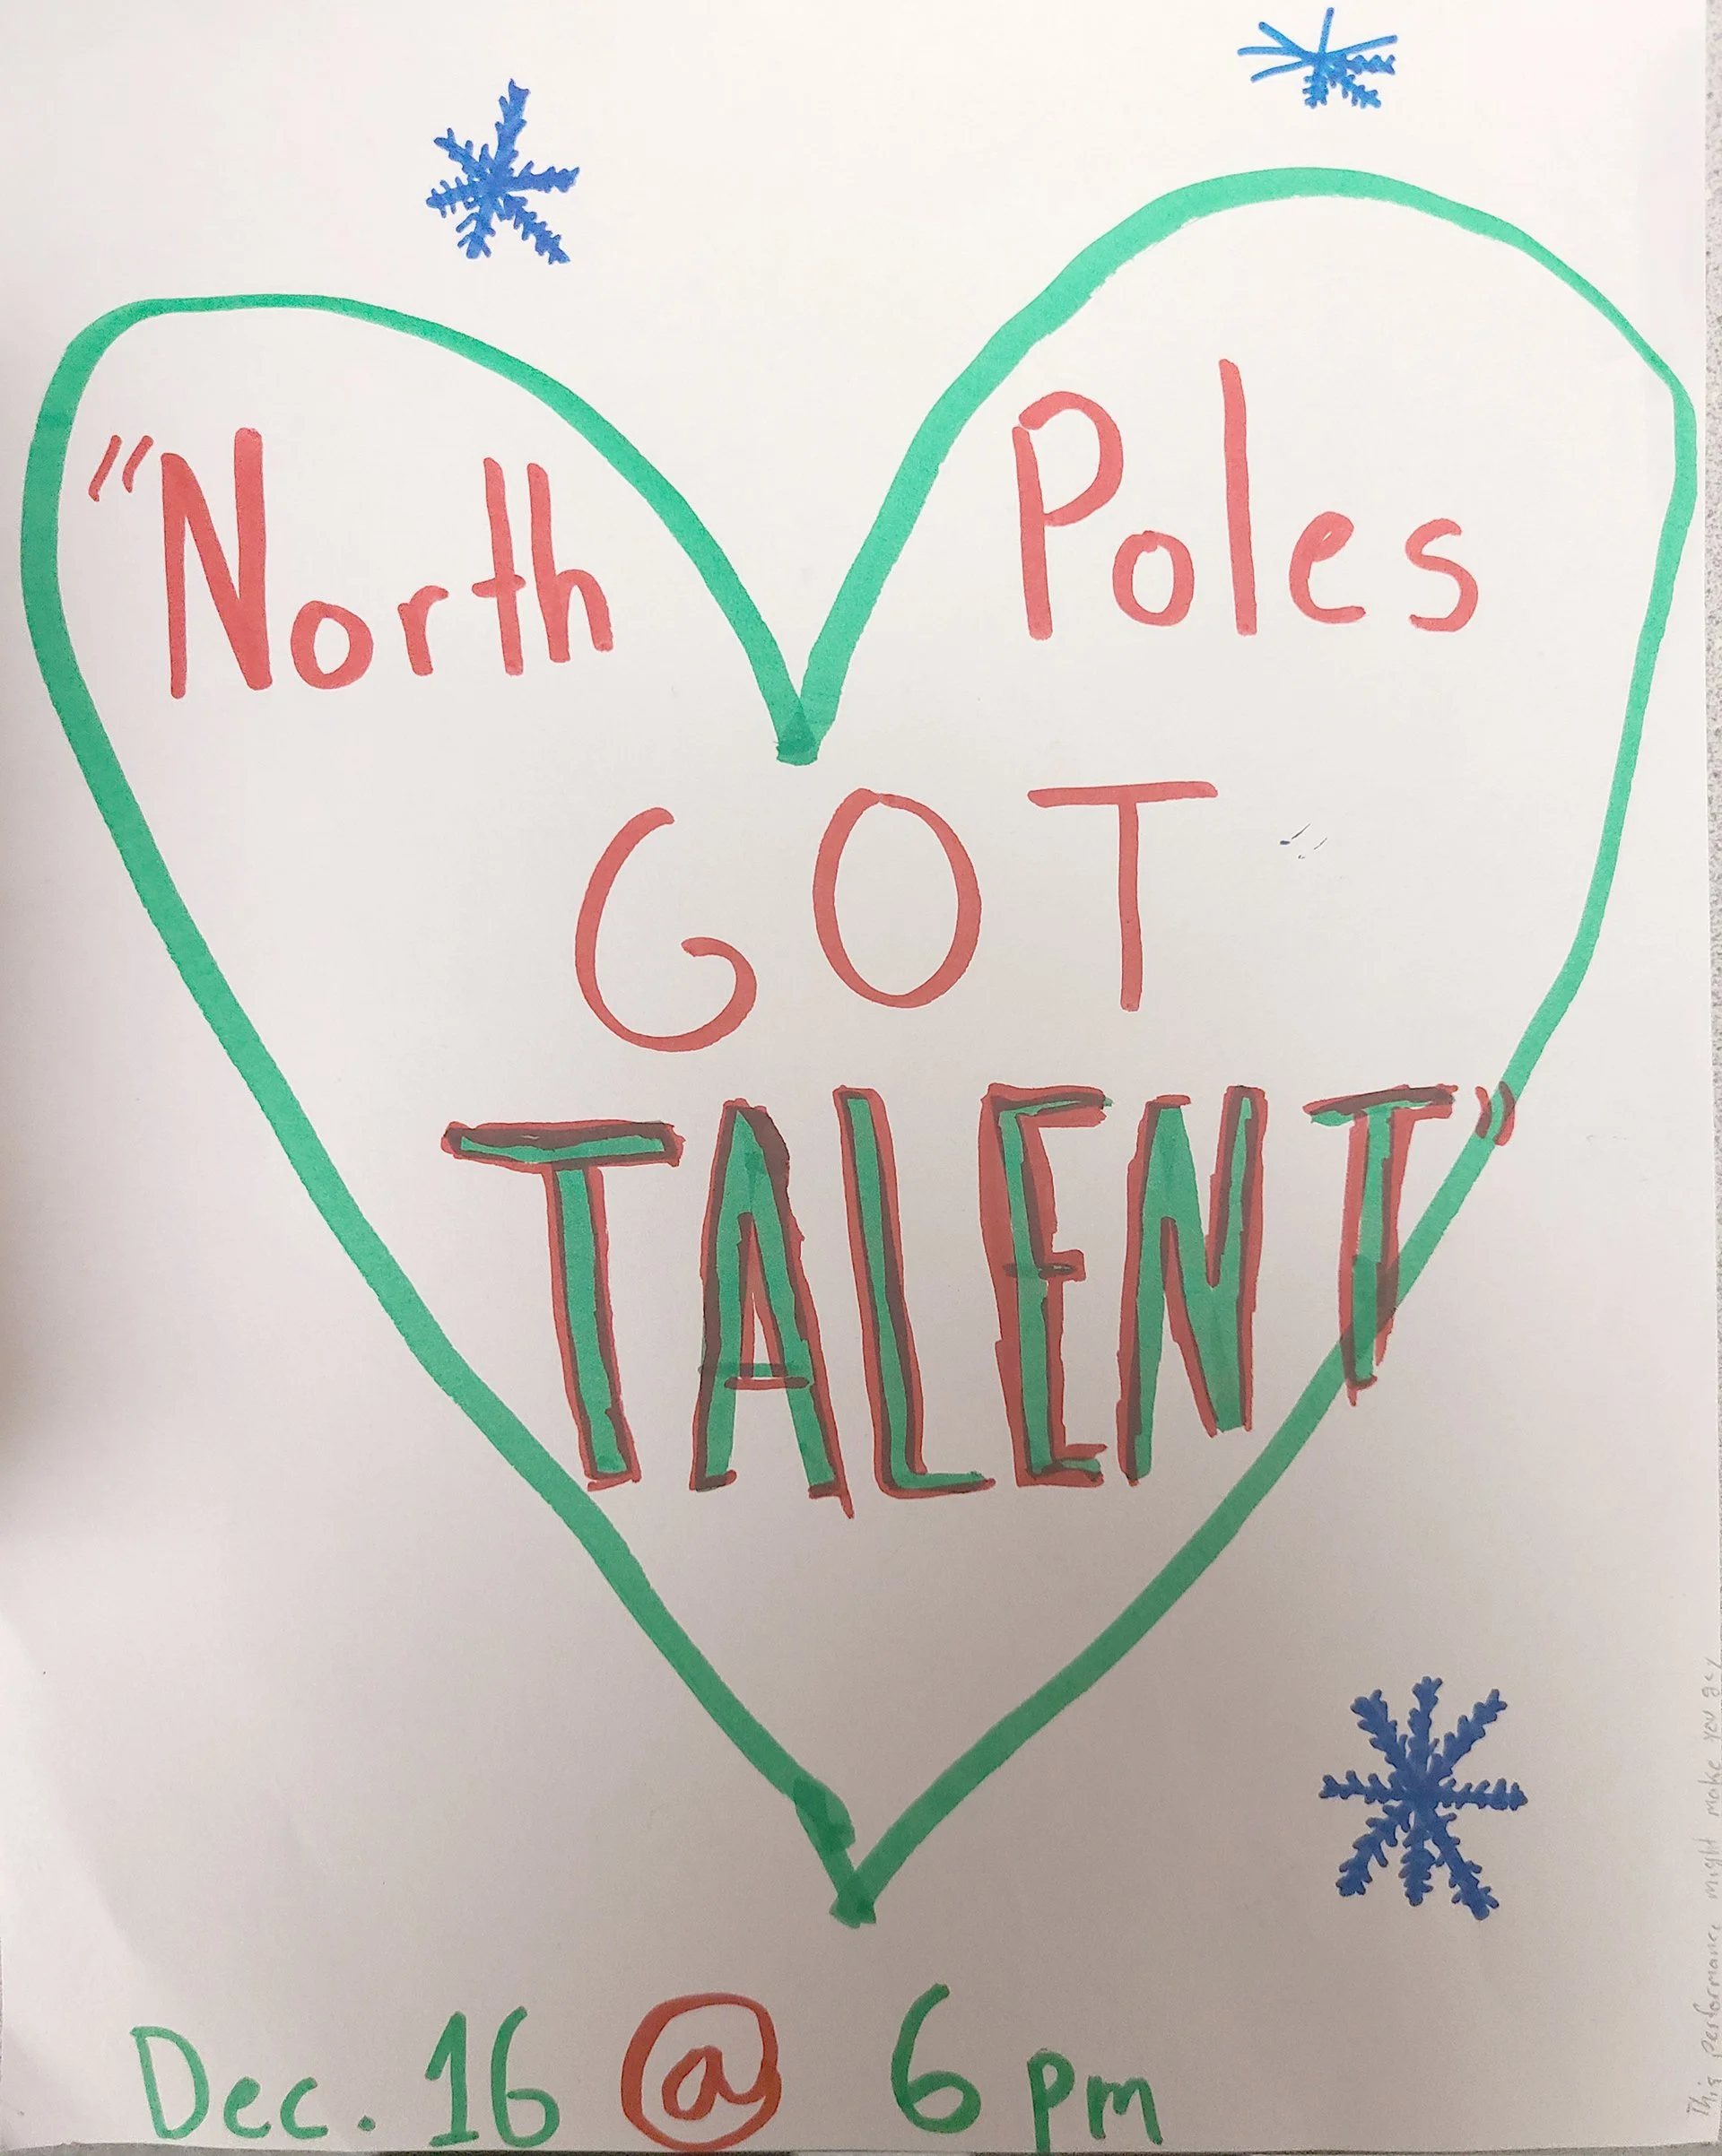 "North Poles
GOT
TALENT"
Dec. 16 @ 6 pm
This performance might make you gay